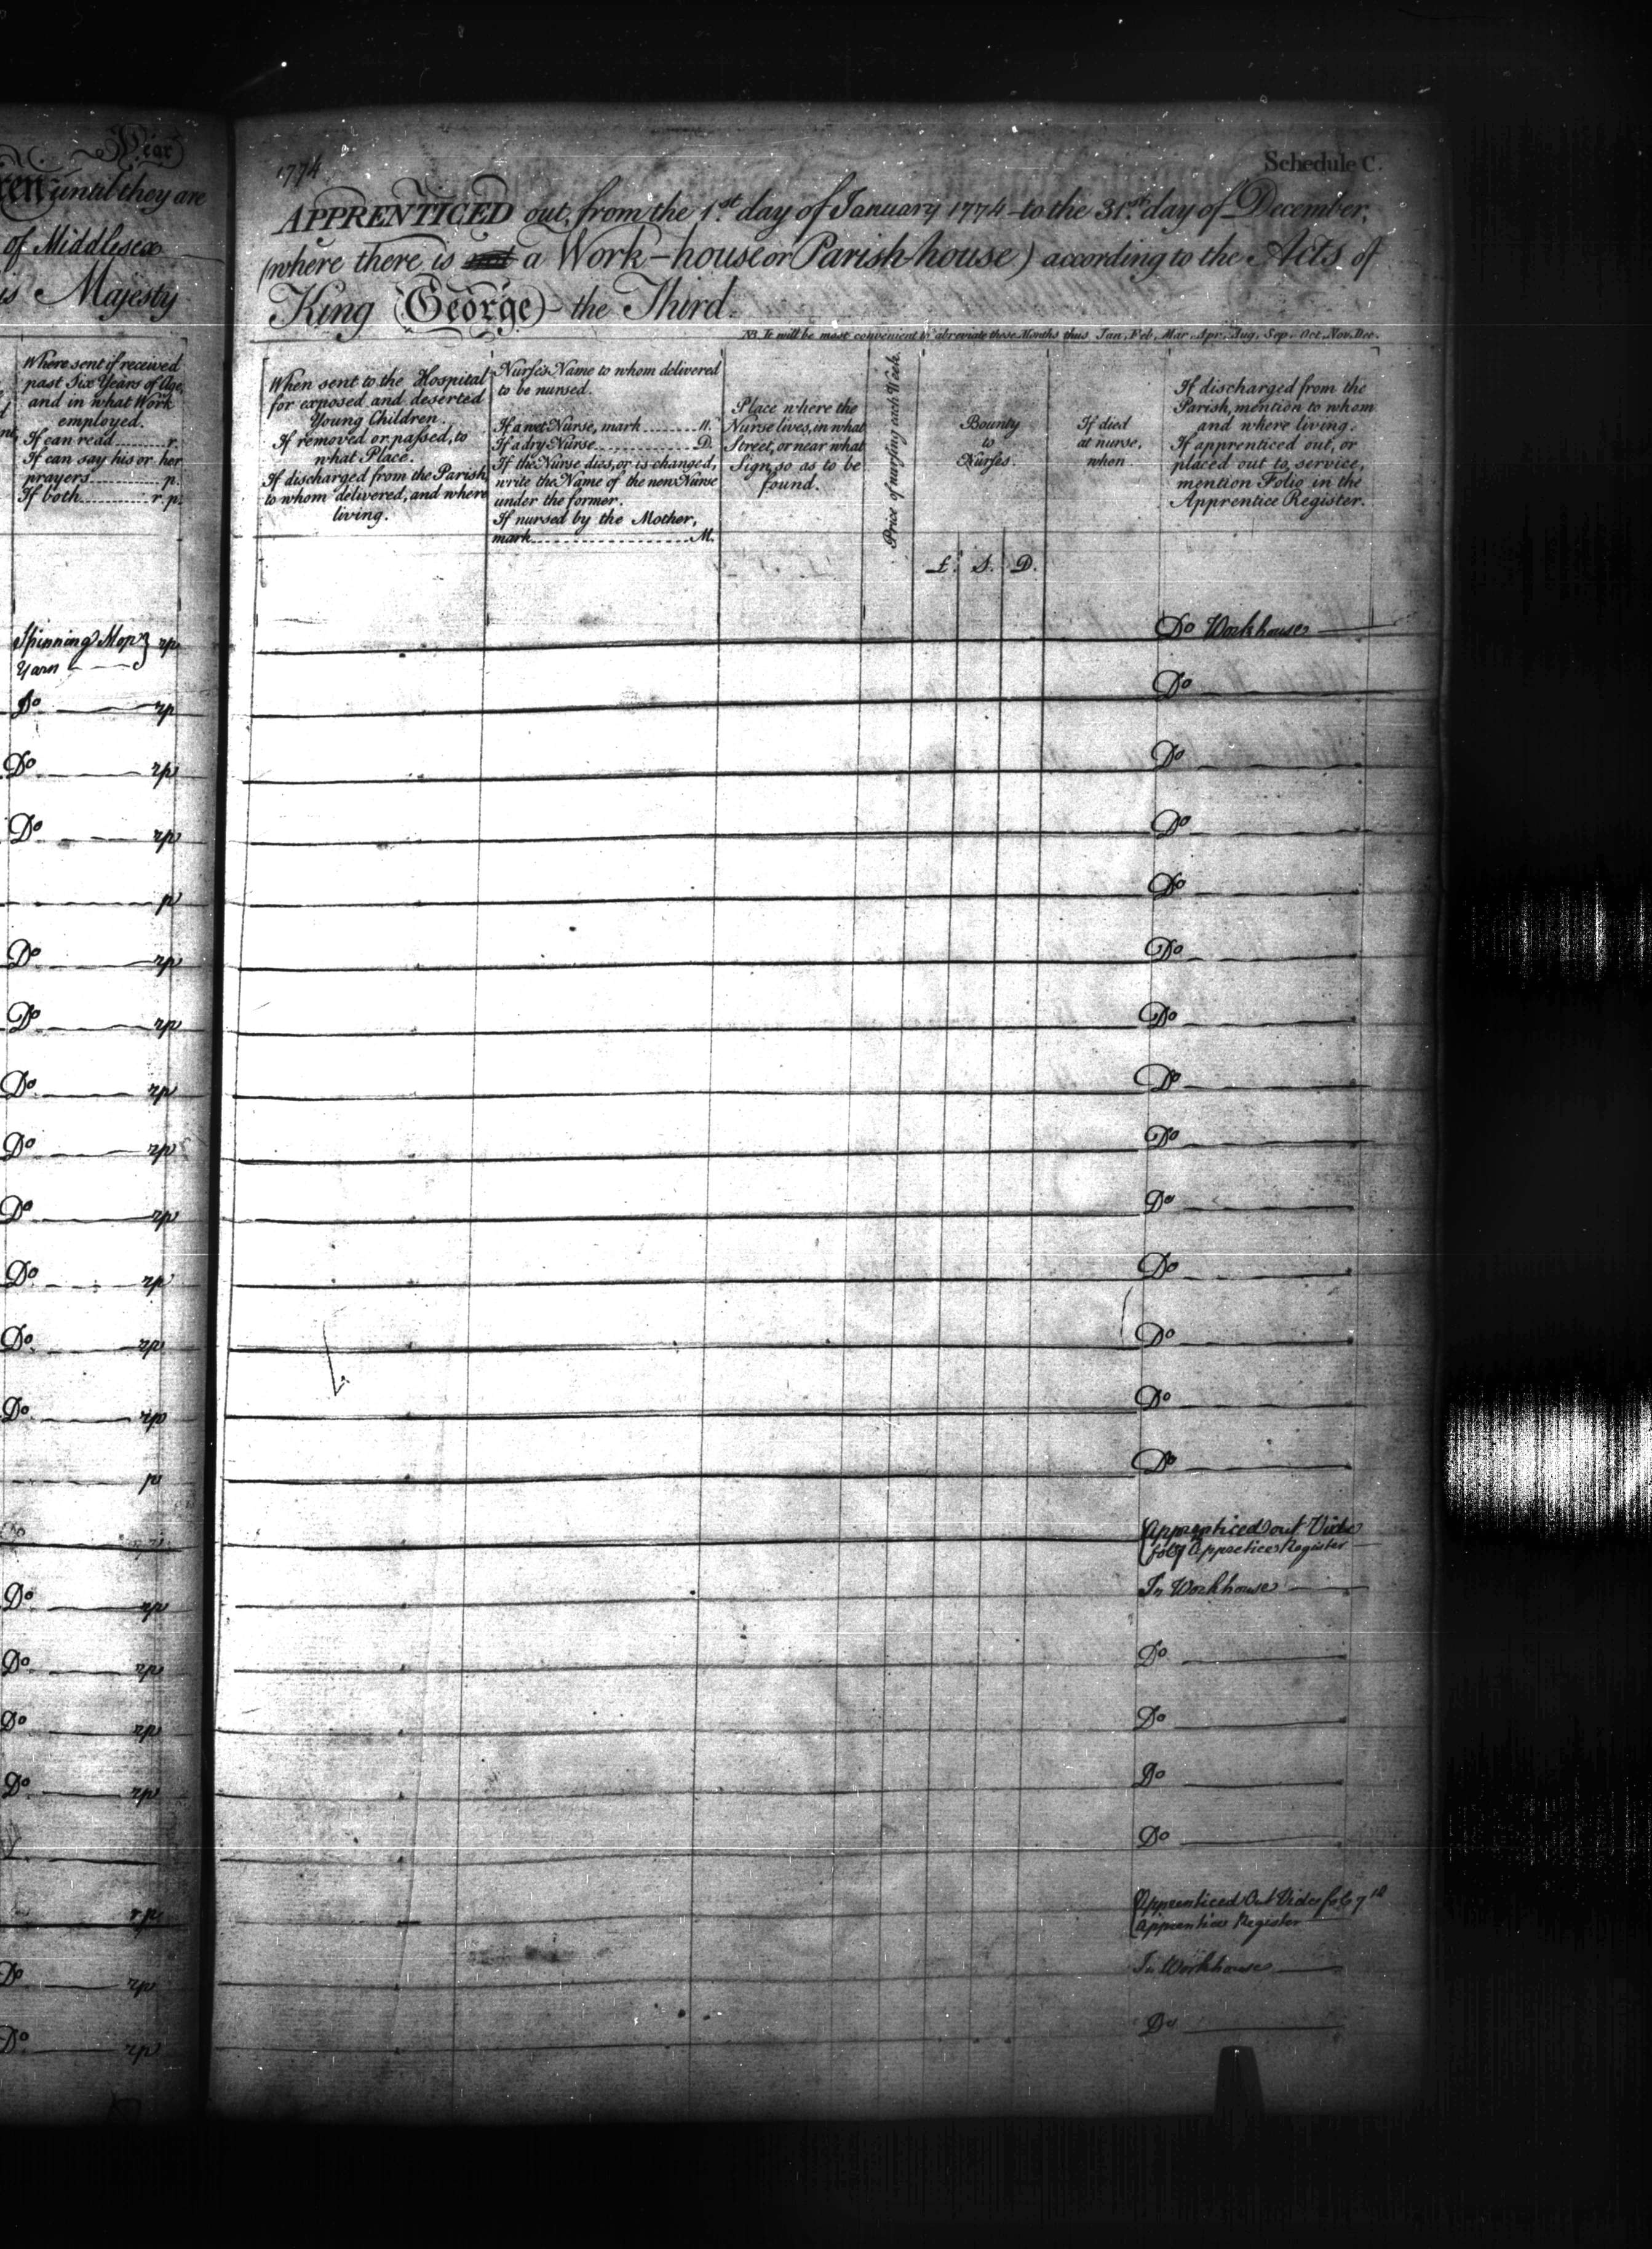 Year
ren until they are
of Middlesex
is Majesty
Where sent if received
past Six Years of Age,
and in what Work
employed.
If can read ........ r.
If can say his or her
prayers ........ p.
If both ........ r.p.
Spinning Mop rp
Yarn
Do rp
Do rp
Do rp
p
Do rp
Do rp
Do rp
Do rp
Do rp
Do rp
Do rp
Do rp
p
Do rp
Do rp
Do rp
Do rp
rp
Do rp
Do rp
1774
Schedule C.
APPRENTICED out, from the 1st. day of January 1774 to the 31st. day of December,
(where there is not a Work-house or Parish-house) according to the Acts of
King George the Third.
NB. It will be most convenient to abreviate these Months thus Jan, Feb, Mar, Apr, Aug, Sep, Oct, Nov, Dec.
When sent to the Hospital
for exposed and deserted
Young Children.
If removed or passed, to
what Place.
If discharged from the Parish,
to whom delivered, and where
living.
Nurse's Name to whom delivered
to be nursed.
If a wet Nurse, mark ........ n.
If a dry Nurse ........ D.
If the Nurse dies, or is changed,
write the Name of the new Nurse
under the former.
If nursed by the Mother,
mark ........ M.
Place where the
Nurse lives, in what
Street, or near what
Sign, so as to be
found.
Price of nursing each Week.
Bounty
to
Nurses.
£. S. D.
If died
at nurse,
when
If discharged from the
Parish, mention to whom
and where living.
If apprenticed out, or
placed out to service,
mention Folio in the
Apprentice Register.
Do Workhouse
Do
Do
Do
Do
Do
Do
Do
Do
Do
Do
Do
Do
Do
Apprenticed out Vide
fol 7 Apprentice Register
In Workhouse
Do
Do
Do
Do
Apprenticed Out Vide fol 7th
Apprentice Register
In Workhouse
Do